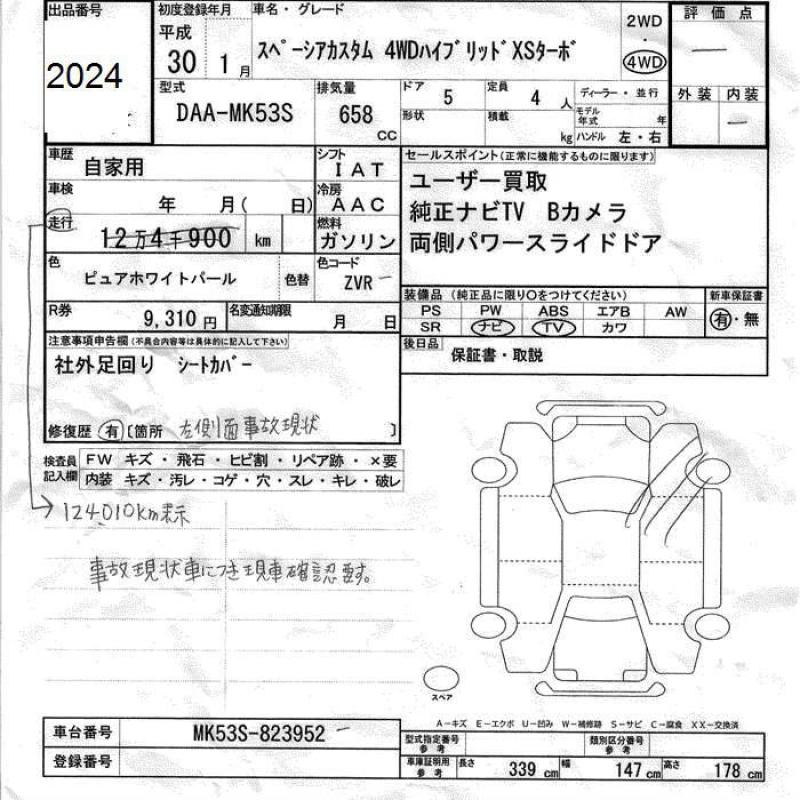 出品番号
2024
初度登録年月
平成
30 1月
車名・グレード
スペーシアカスタム 4WDハイブリッドXSターボ
2WD
・
4WD
評価点
―
外装 内装
―
型式
DAA-MK53S
排気量
658
CC
ドア 5
定員 4 人
ディーラー・並行
形状
積載 kg
モデル年式 年
ハンドル 左・右
車歴 自家用
シフト IAT
車検 年 月( 日)
冷房 AAC
走行 12万4千900 km
燃料 ガソリン
色 ピュアホワイトパール 色替
色コード ZVR
R券 9,310円
名変通知期限 月 日
セールスポイント(正常に機能するものに限ります)
ユーザー買取
純正ナビTV Bカメラ
両側パワースライドドア
装備品 (純正品に限り○をつけてください)
PS PW ABS エアB AW
SR ナビ TV カワ
新車保証書
有・無
後日品 保証書・取説
注意事項申告欄(不具合内容等は具体的に記入して下さい)
社外足回り シートカバー
修復歴 有 [箇所 左側面事故現状 ]
検査員記入欄
FW キズ・飛石・ヒビ割・リペア跡・×要
内装 キズ・汚レ・コゲ・穴・スレ・キレ・破レ
124,010km表示
事故現状車につき現車確認要す。
スペア
A-キズ E-エクボ U-凹み W-補修跡 S-サビ C-腐食 XX-交換済
車台番号 MK53S-823952
登録番号
型式指定番号 参考
類別区分番号 参考
車庫証明用 参考
長さ 339cm 幅 147cm 高さ 178cm